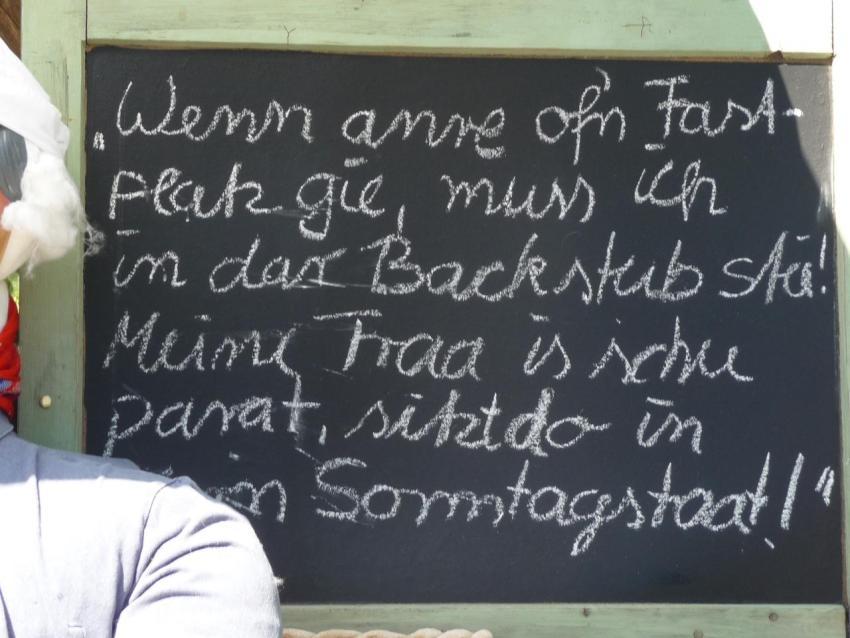 „Wenn anre of'n Fast-
platz gie, muss ich
in dar Backstub stii!
Meine Fraa is schu
parat, sitzt do in
Sonntagstaat!"